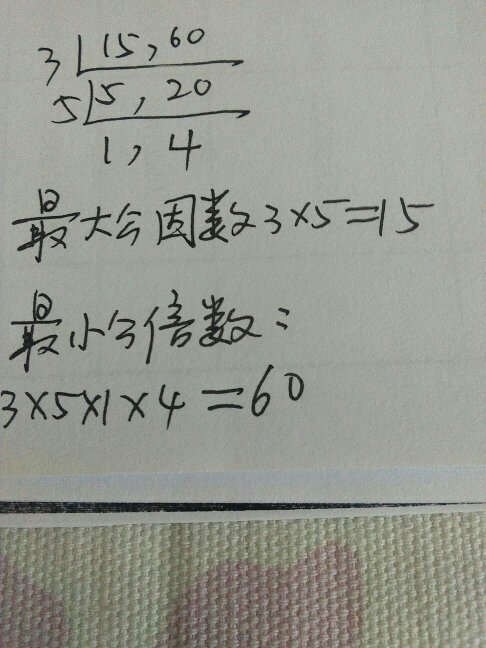 3 15,60
5 5,20
1,4
最大公因数3×5=15
最小公倍数:
3×5×1×4=60